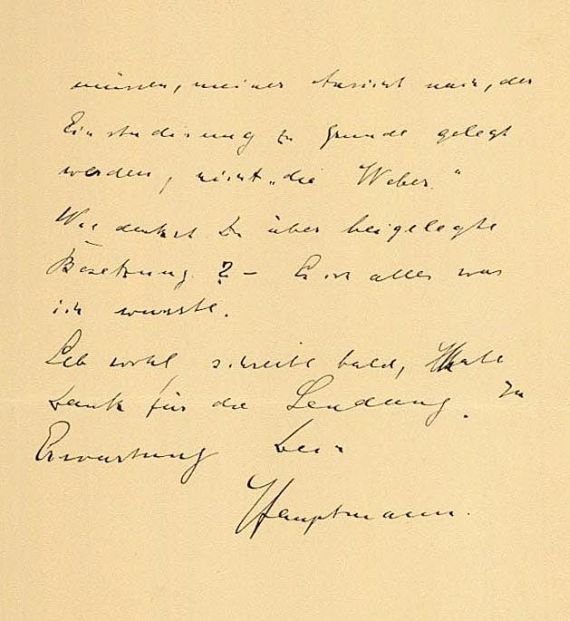 müssen, meiner Ansicht nach, der
Einstudirung zu Grunde gelegt
werden, nicht „die Weber.“
Was denkst Du über beigelegte
Besetzung? – Es ist alles was
ich wusste.
Leb wohl, schreibe bald, Habe
Dank für die Sendung. In
Erwartung Dein
Hauptmann.